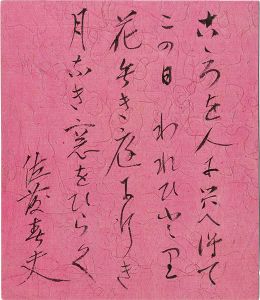 こゝろを人に與へ得て
この日われひとり
花なき庭に行き
月なき窓をひらく
佐藤春夫